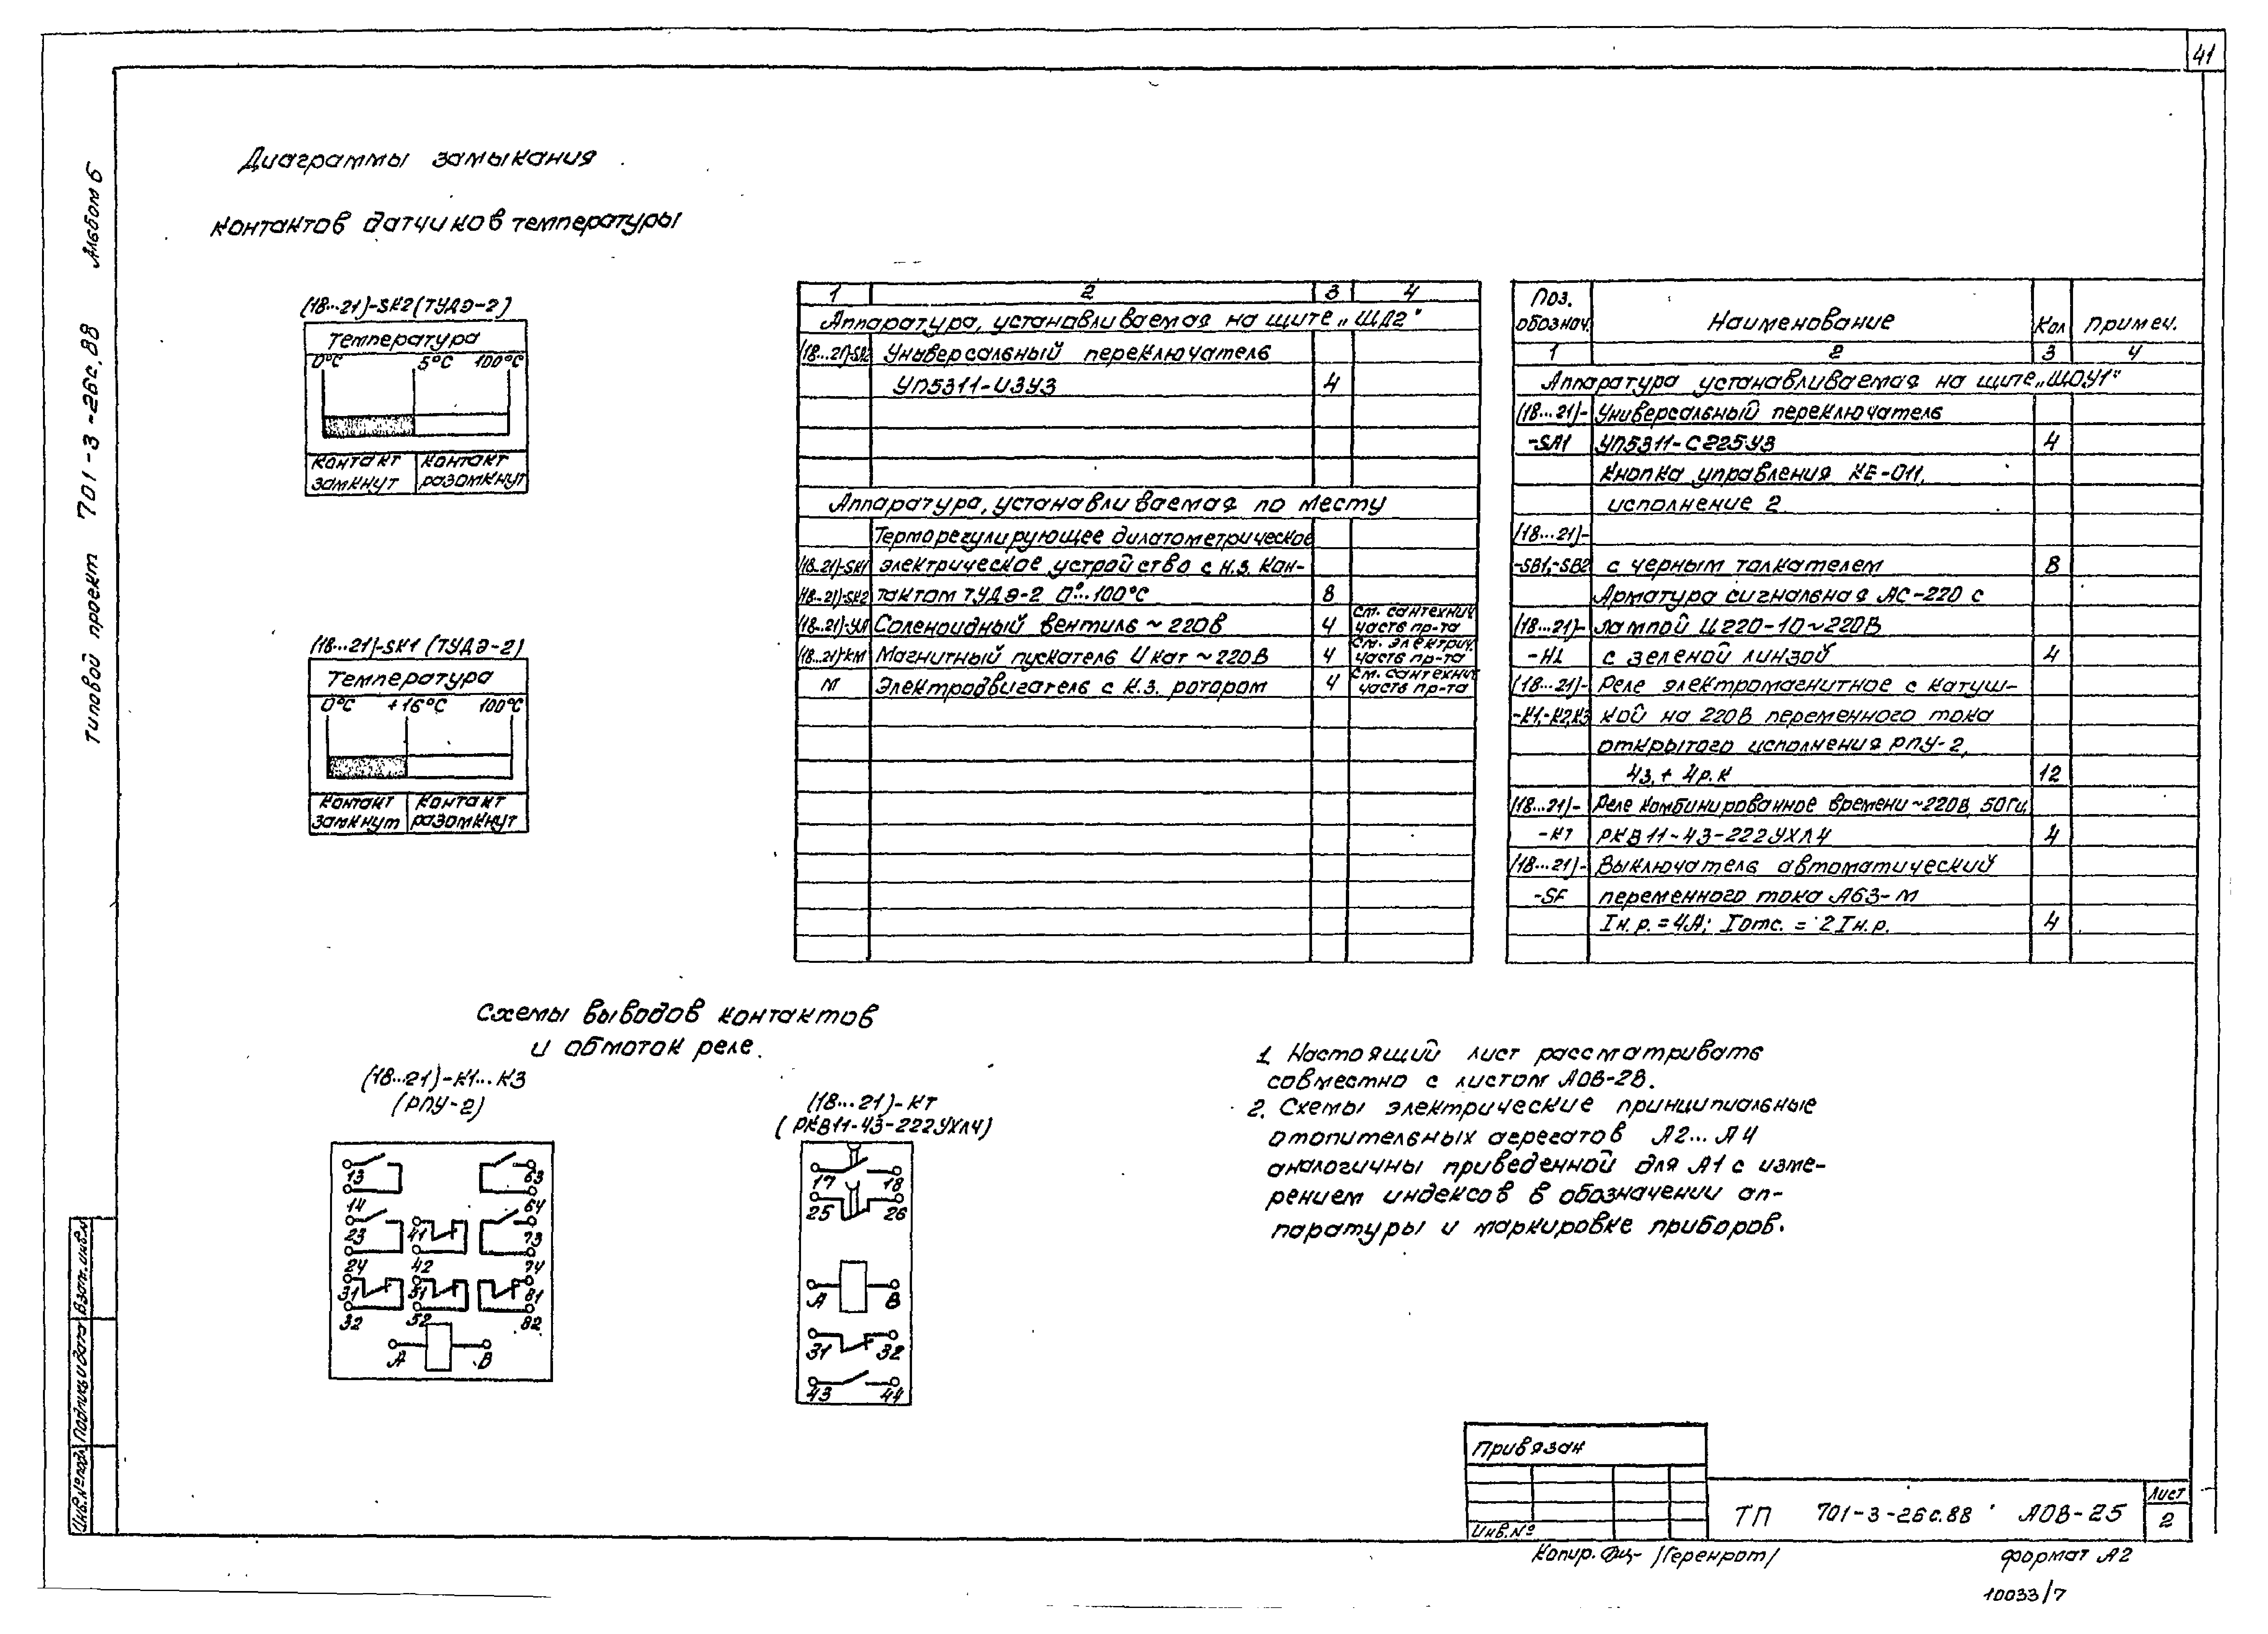 41
Типовой проект 701-3-26с.88 Альбом 6
Диаграммы замыкания
контактов датчиков температуры
(18...21)-SK2 (ТУДЭ-2)
Температура
0°С 5°С 100°С
Контакт замкнут
Контакт разомкнут
(18...21)-SK1 (ТУДЭ-2)
Температура
0°С +16°С 100°С
Контакт замкнут
Контакт разомкнут
1 2 3 4
Аппаратура, устанавливаемая на щите „ЩД2"
(18...21)-SA2 Универсальный переключатель
УП5311-И3У3 4
Аппаратура, устанавливаемая по месту
Терморегулирующее дилатометрическое
(18...21)-SK1 электрическое устройство с н.з. кон-
(18...21)-SK2 тактом ТУДЭ-2 0°...100°С 8
(18...21)-УА Соленоидный вентиль ~ 220В 4 см. сантехнич. часть пр-та
(18...21)-КМ Магнитный пускатель Uкат ~ 220В 4 см. электрич. часть пр-та
М Электродвигатель с к.з. ротором 4 см. сантехнич. часть пр-та
Поз. обознач. Наименование Кол Примеч.
1 2 3 4
Аппаратура устанавливаемая на щите „ШОУ1"
(18...21)- Универсальный переключатель
-SA1 УП5311-С225У3 4
Кнопка управления КЕ-011,
исполнение 2
(18...21)-
-SB1,-SB2 с черным толкателем 8
Арматура сигнальная АС-220 с
(18...21)- лампой Ц220-10~220В
-HL с зеленой линзой 4
(18...21)- Реле электромагнитное с катуш-
-К1,-К2,К3 кой на 220В переменного тока
открытого исполнения РПУ-2,
4з.+ 4р.к 12
(18...21)- Реле комбинированное времени ~220В, 50Гц,
-КТ РКВ11-43-222УХЛ4 4
(18...21)- Выключатель автоматический
-SF переменного тока А63-М
Iн.р.=4А; Iотс.=2Iн.р. 4
Схемы выводов контактов
и обмоток реле.
(18...21)-К1...К3
(РПУ-2)
13 63
14 64
23 41 73
24 42 74
31 51 81
32 52 82
А В
(18...21)-КТ
(РКВ11-43-222УХЛ4)
17 18
25 26
А В
31 32
43 44
1. Настоящий лист рассматривать
совместно с листом АОВ-28.
2. Схемы электрические принципиальные
отопительных агрегатов А2...А4
аналогичны приведенной для А1 с изме-
рением индексов в обозначении ап-
паратуры и маркировке приборов.
Инв.№подл. Подпись и дата Взам.инв.№
Привязан
Инв.№
ТП 701-3-26с.88 АОВ-25
Лист
2
Копир. /Геренрот/
формат А2
10033/7